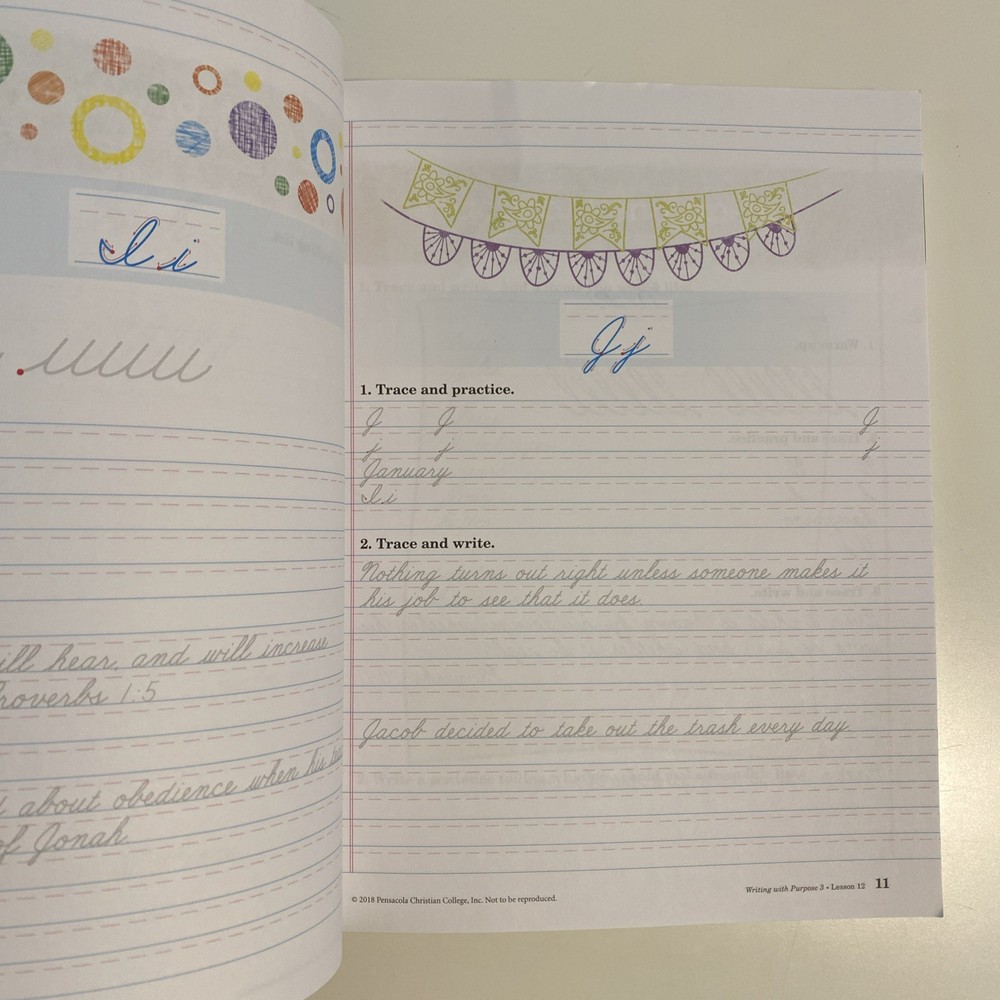 I i
will hear, and will increase
Proverbs 1:5
about obedience when his
of Jonah.
J j
1. Trace and practice.
J J J
j j j
January
I i
2. Trace and write.
Nothing turns out right unless someone makes it
his job to see that it does.
Jacob decided to take out the trash every day.
© 2018 Pensacola Christian College, Inc. Not to be reproduced.
Writing with Purpose 3 • Lesson 12 11